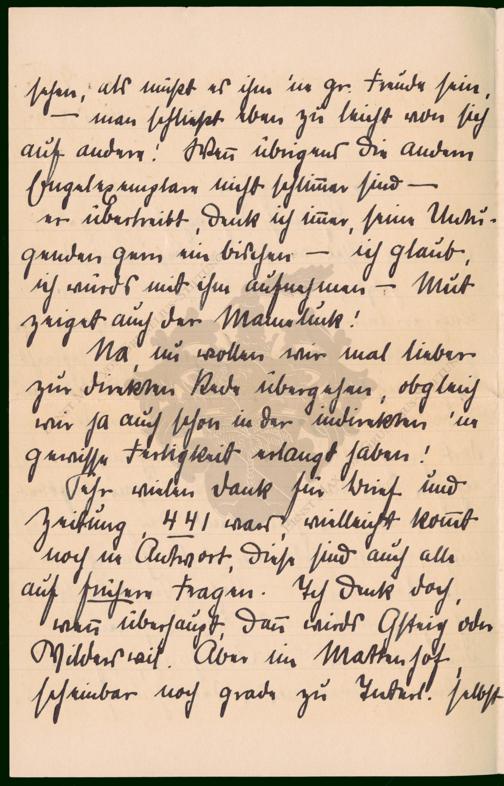 sehen, als müßt es ihm 'ne gr. Freude sein,
— man schließt eben zu leicht von sich
auf andere! Wen̅ übrigens die andern
Engelexemplare nicht schlim̅er sind —
er übertreibt, denk ich im̅er, seine Untu-
genden gern ein bischen — ich glaub,
ich würds mit ihm aufnehmen — Mut
zeiget auch der Mameluck!
Na, nu wollen wir mal lieber
zur direkten Rede übergehen, obgleich
wir ja auch schon in der indirekten 'ne
gewisse Fertigkeit erlangt haben!
Sehr vielen Dank für Brief und
Zeitung, 441 wars, vielleicht kom̅t
noch ne Antwort, diese sind auch alle
auf frühere Fragen. Ich denk doch,
wen̅ überhaupt, dan̅ wirds Gsteig oder
Wilderswil. Aber im Mattenhof,
scheinbar noch grade zu Interl. selbst